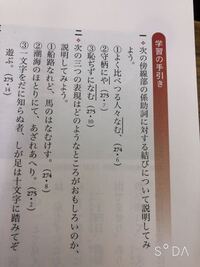 学習の手引き
一 次の傍線部の係助詞に対する結びについて説明してみ
よう。
①よく比べつる人々なむ、（274・6）
②守柄にや（275・7）
③恥ぢずになむ（275・10）
二 次の三つの表現はどのようなところがおもしろいのか、
説明してみよう。
①船路なれど、馬のはなむけす。（274・8）
②潮海のほとりにて、あざれあへり。（275・2）
③一文字をだに知らぬ者、しが足は十文字に踏みてぞ
遊ぶ。（275・14）
SODA